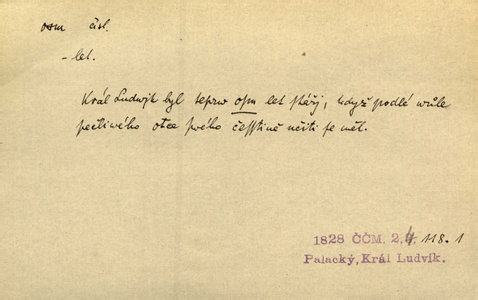 osm čísl.
- let.
Král Ludwjk byl teprw osm let stářj, když podlé wůle
pečliwého otce swého češstině učiti se měl.
1828 ČČM. 2,4. 118.1
Palacký, Král Ludvík.